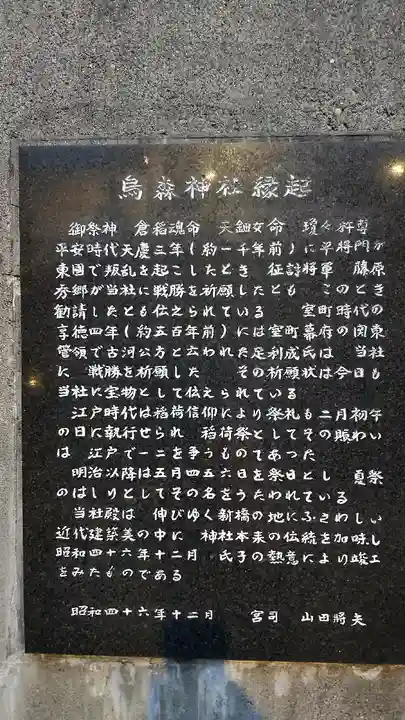 烏森神社縁起
御祭神 倉稲魂命 天鈿女命 瓊々杵尊
平安時代天慶三年(約一千年前)に平将門が
東國で叛乱を起こしたとき 征討将軍 藤原
秀郷が当社に戦勝を祈願したとも このとき
勧請したとも伝えられている 室町時代の
享徳四年(約五百年前)には室町幕府の関東
管領で古河公方と云われた足利成氏は 当社
に 戦勝を祈願した その祈願状は今日も
当社に宝物として伝えられている
江戸時代は稲荷信仰により祭礼も二月初午
の日に執行せられ 稲荷祭としてその賑わい
は 江戸で一二を争うものであった
明治以降は五月四五六日を祭日とし 夏祭
のはしりとしてその名をうたわれている
当社殿は 伸びゆく新橋の地にふさわしい
近代建築美の中に 神社本来の伝統を加味し
昭和四十六年十二月 氏子の熱意により竣工
をみたものである
昭和四十六年十二月 宮司 山田將夫